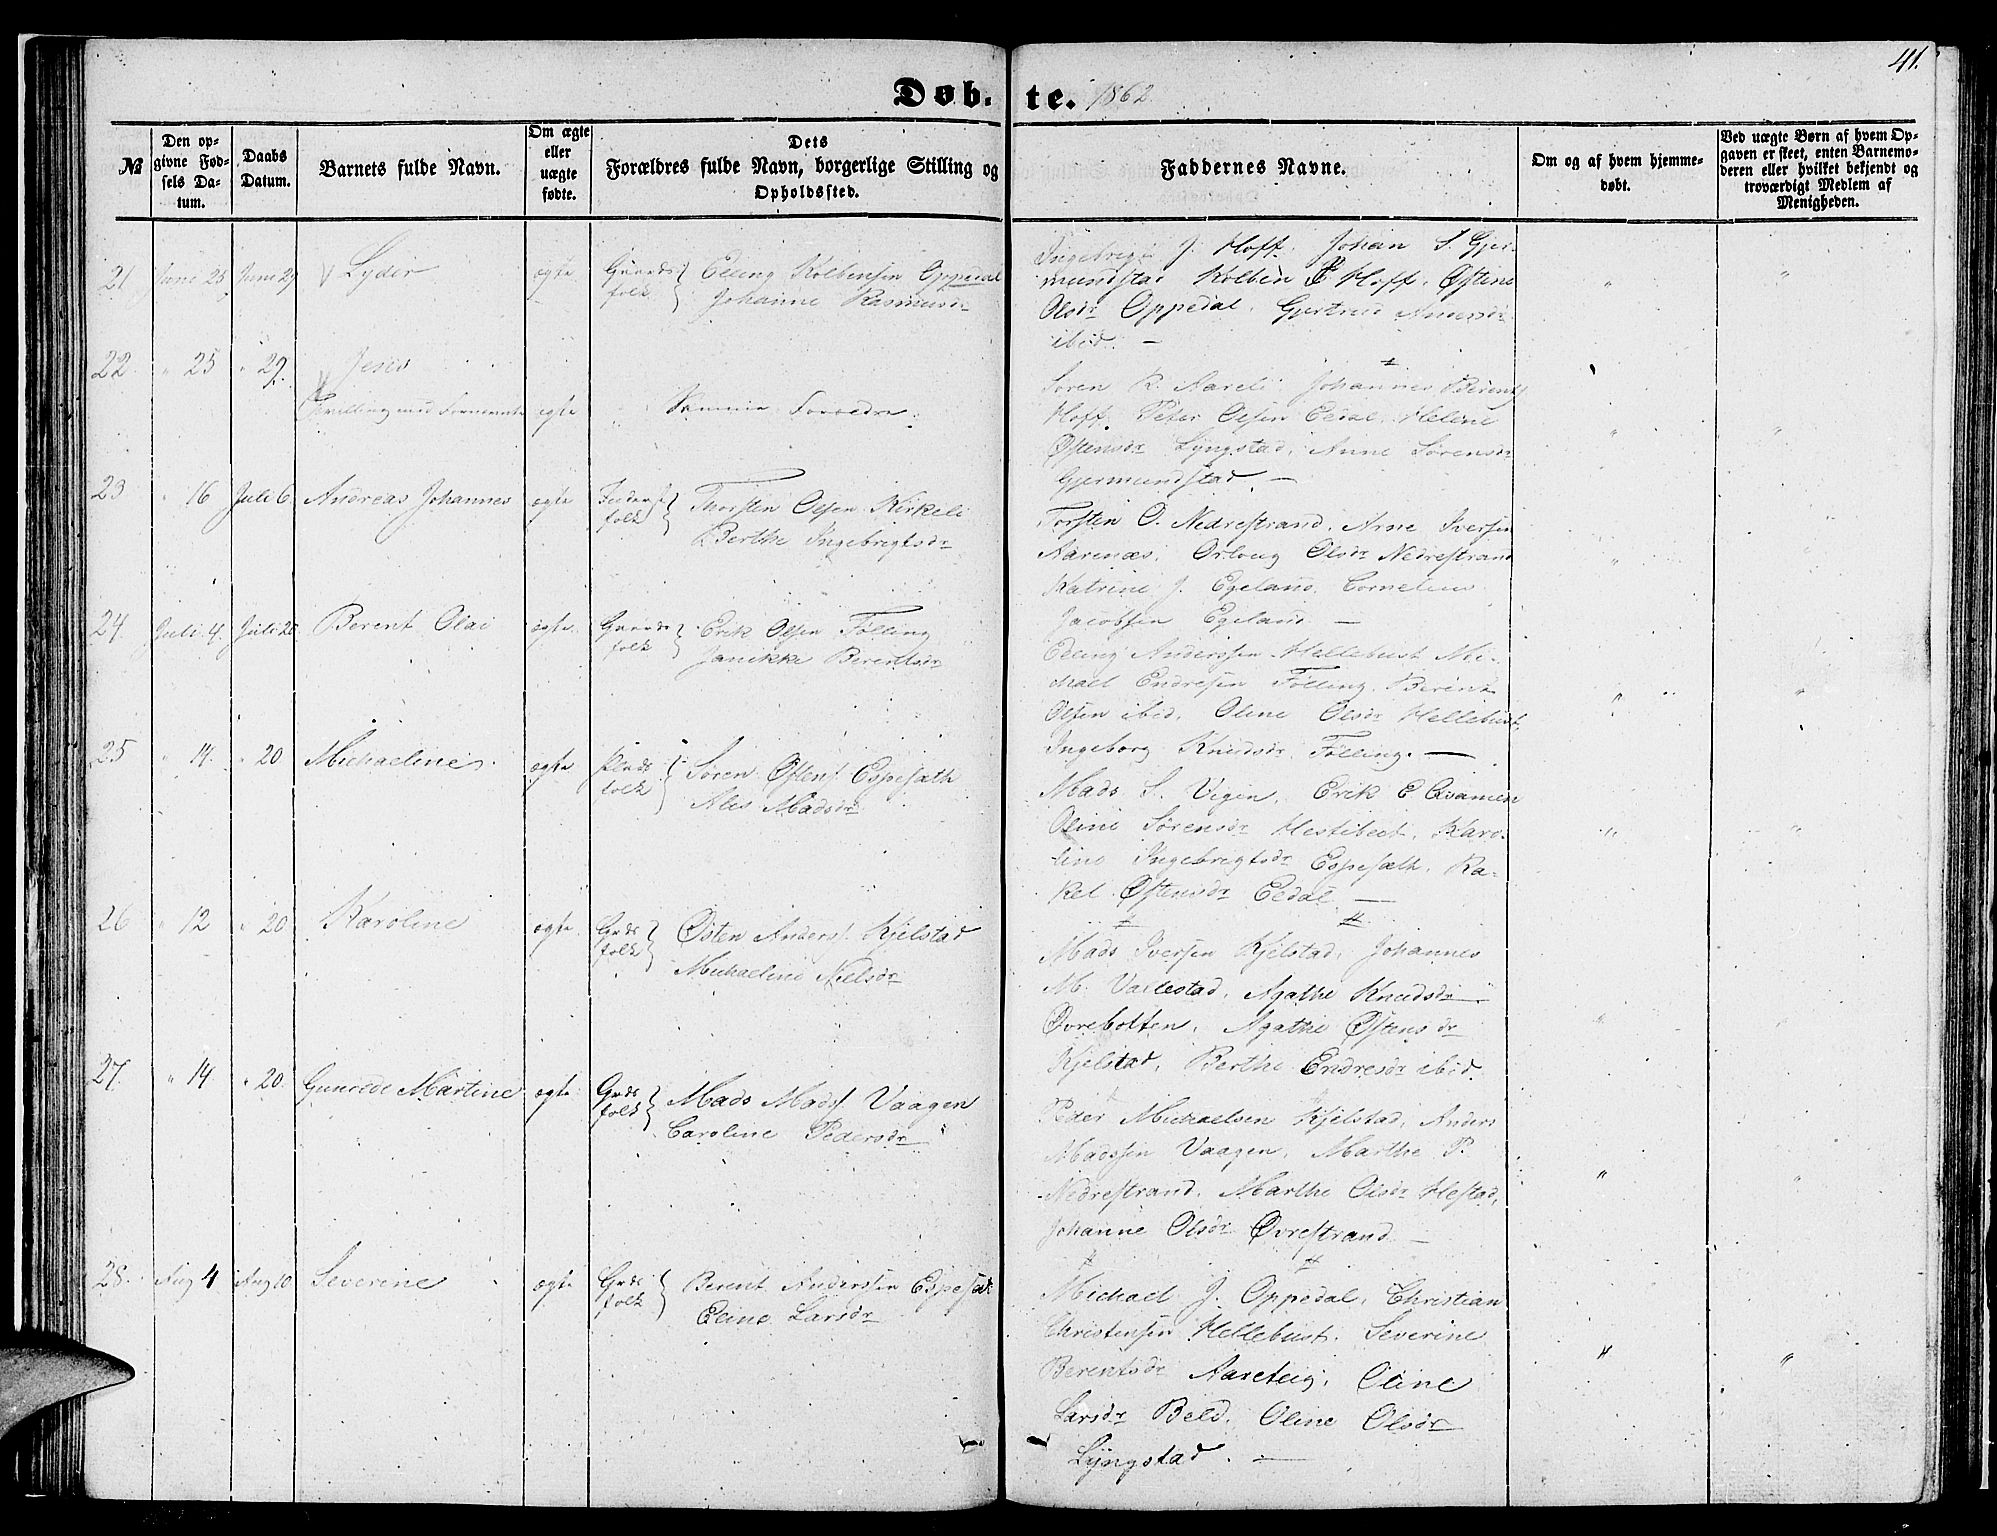 41.
Døb-te. 1862
№
Den opgivne Fødsels Datum.
Daabs Datum.
Barnets fulde Navn.
Om ægte eller uægte fødte.
Dets Forældres fulde Navn, borgerlige Stilling og Opholdssted.
Faddernes Navne.
Om og af hvem hjemmedøbt.
Ved uægte Børn af hvem Opgaven er skeet, enten Barnemoderen eller hvilket bekjendt og troværdigt Medlem af Menigheden.
21 Juni 25 Juni 29 Lyder ægte Gaardsfolk
Elling Kolbensen Oppedal
Johanne Rasmusdr
Ingebrigt J. Hoff. Johan S. Gjer-
mundstad Kolben E Hoff. Østine
Olsdr Oppedal, Gjertrud
ibid. —
22 " 25 " 29. Jens
Tvilling med Fornævnte ægte Samme Forældre.
Søren R. Aareli Johannes Berents
Hoff. Peter Olsen Eedal. Helene
Østensdr Lÿngstad, Anne Sørensdr
Gjermundstad. —
23 " 16 Juli 6 Andreas Johannes ægte folk
Thorsten Olsen Kirkeli
Berthe Ingebrigtsdr
Torsten O. Nedrestrand, Arne Iversen
Aarenæs. Olsdr Nedrestrand
Katrine J. Egeland. Cornelius
Jacobsen Egeland —
24. Juli 4. Juli 20 Berent Olai ægte. Gaardsfolk
Erik Olsen Følling
Janikke Berentsdr
Elling Anderssen Hellebust Mi-
chael Endresen Følling. Berent
Olsen ibid. Oline Olsdr Hellebust,
Ingeborg Knudsdr Følling. —
25 " 14. " 20 Michaeline. ægte Pladsfolk
Søren Østens. Espesæth
Ales Madsdr
Mads S. Vigen. Erik E Qvamen
Oline Sørensdr Hestebeit. Karo-
line Ingebrigtsdr Espesæth. Ra-
kel Østensdr Eedal —
26 " 12 " 20 Karoline ægte. Grdsfolk
Østen Anders. Kjelstad
Michaeline Nielsdr
Mads Iversen Kjelstad, Johannes
M. Vallestad, Agathe Knudsdr
Øvrebotten, Agathe Østensdr
Kjelstad, Berthe Endresdr ibid.
27. " 14 " 20. Martine ægte Grdsfolk
Mads Mads. Vaagen
Caroline Pedersdr
Peder Michaelsen Kjelstad, Anders
Madssen Vaagen, Marthe P.
Nedrestrand. Marthe Olsdr Hestad,
Johanne Olsdr Øvrestrand —
28. Aug 4 Aug 10 Severine ægte Grdsfolk
Berent Anderssen Espesæt
Eline Larsdr
Michael J. Oppedal, Christian
Christensen Hellebust. Severine
Berentsdr Aareteig, Oline
Larsdr Beld. Oline Olsdr
Lÿngstad. —